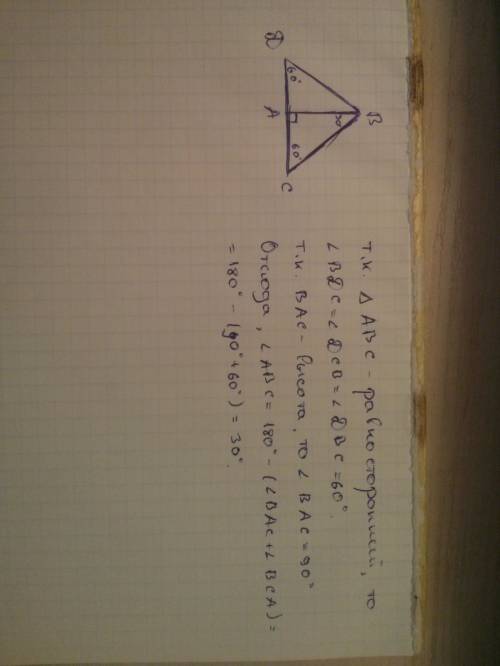 D
60°
A
60°
C
B
30°
т.к. △ ABC - равносторонний, то
∠BDC=∠DCB=∠DBC=60°.
т.к. BAC - высота, то ∠BAC=90°
Отсюда, ∠ABC=180°-(∠BAC+∠BCA)=
=180°-(90°+60°)=30°.